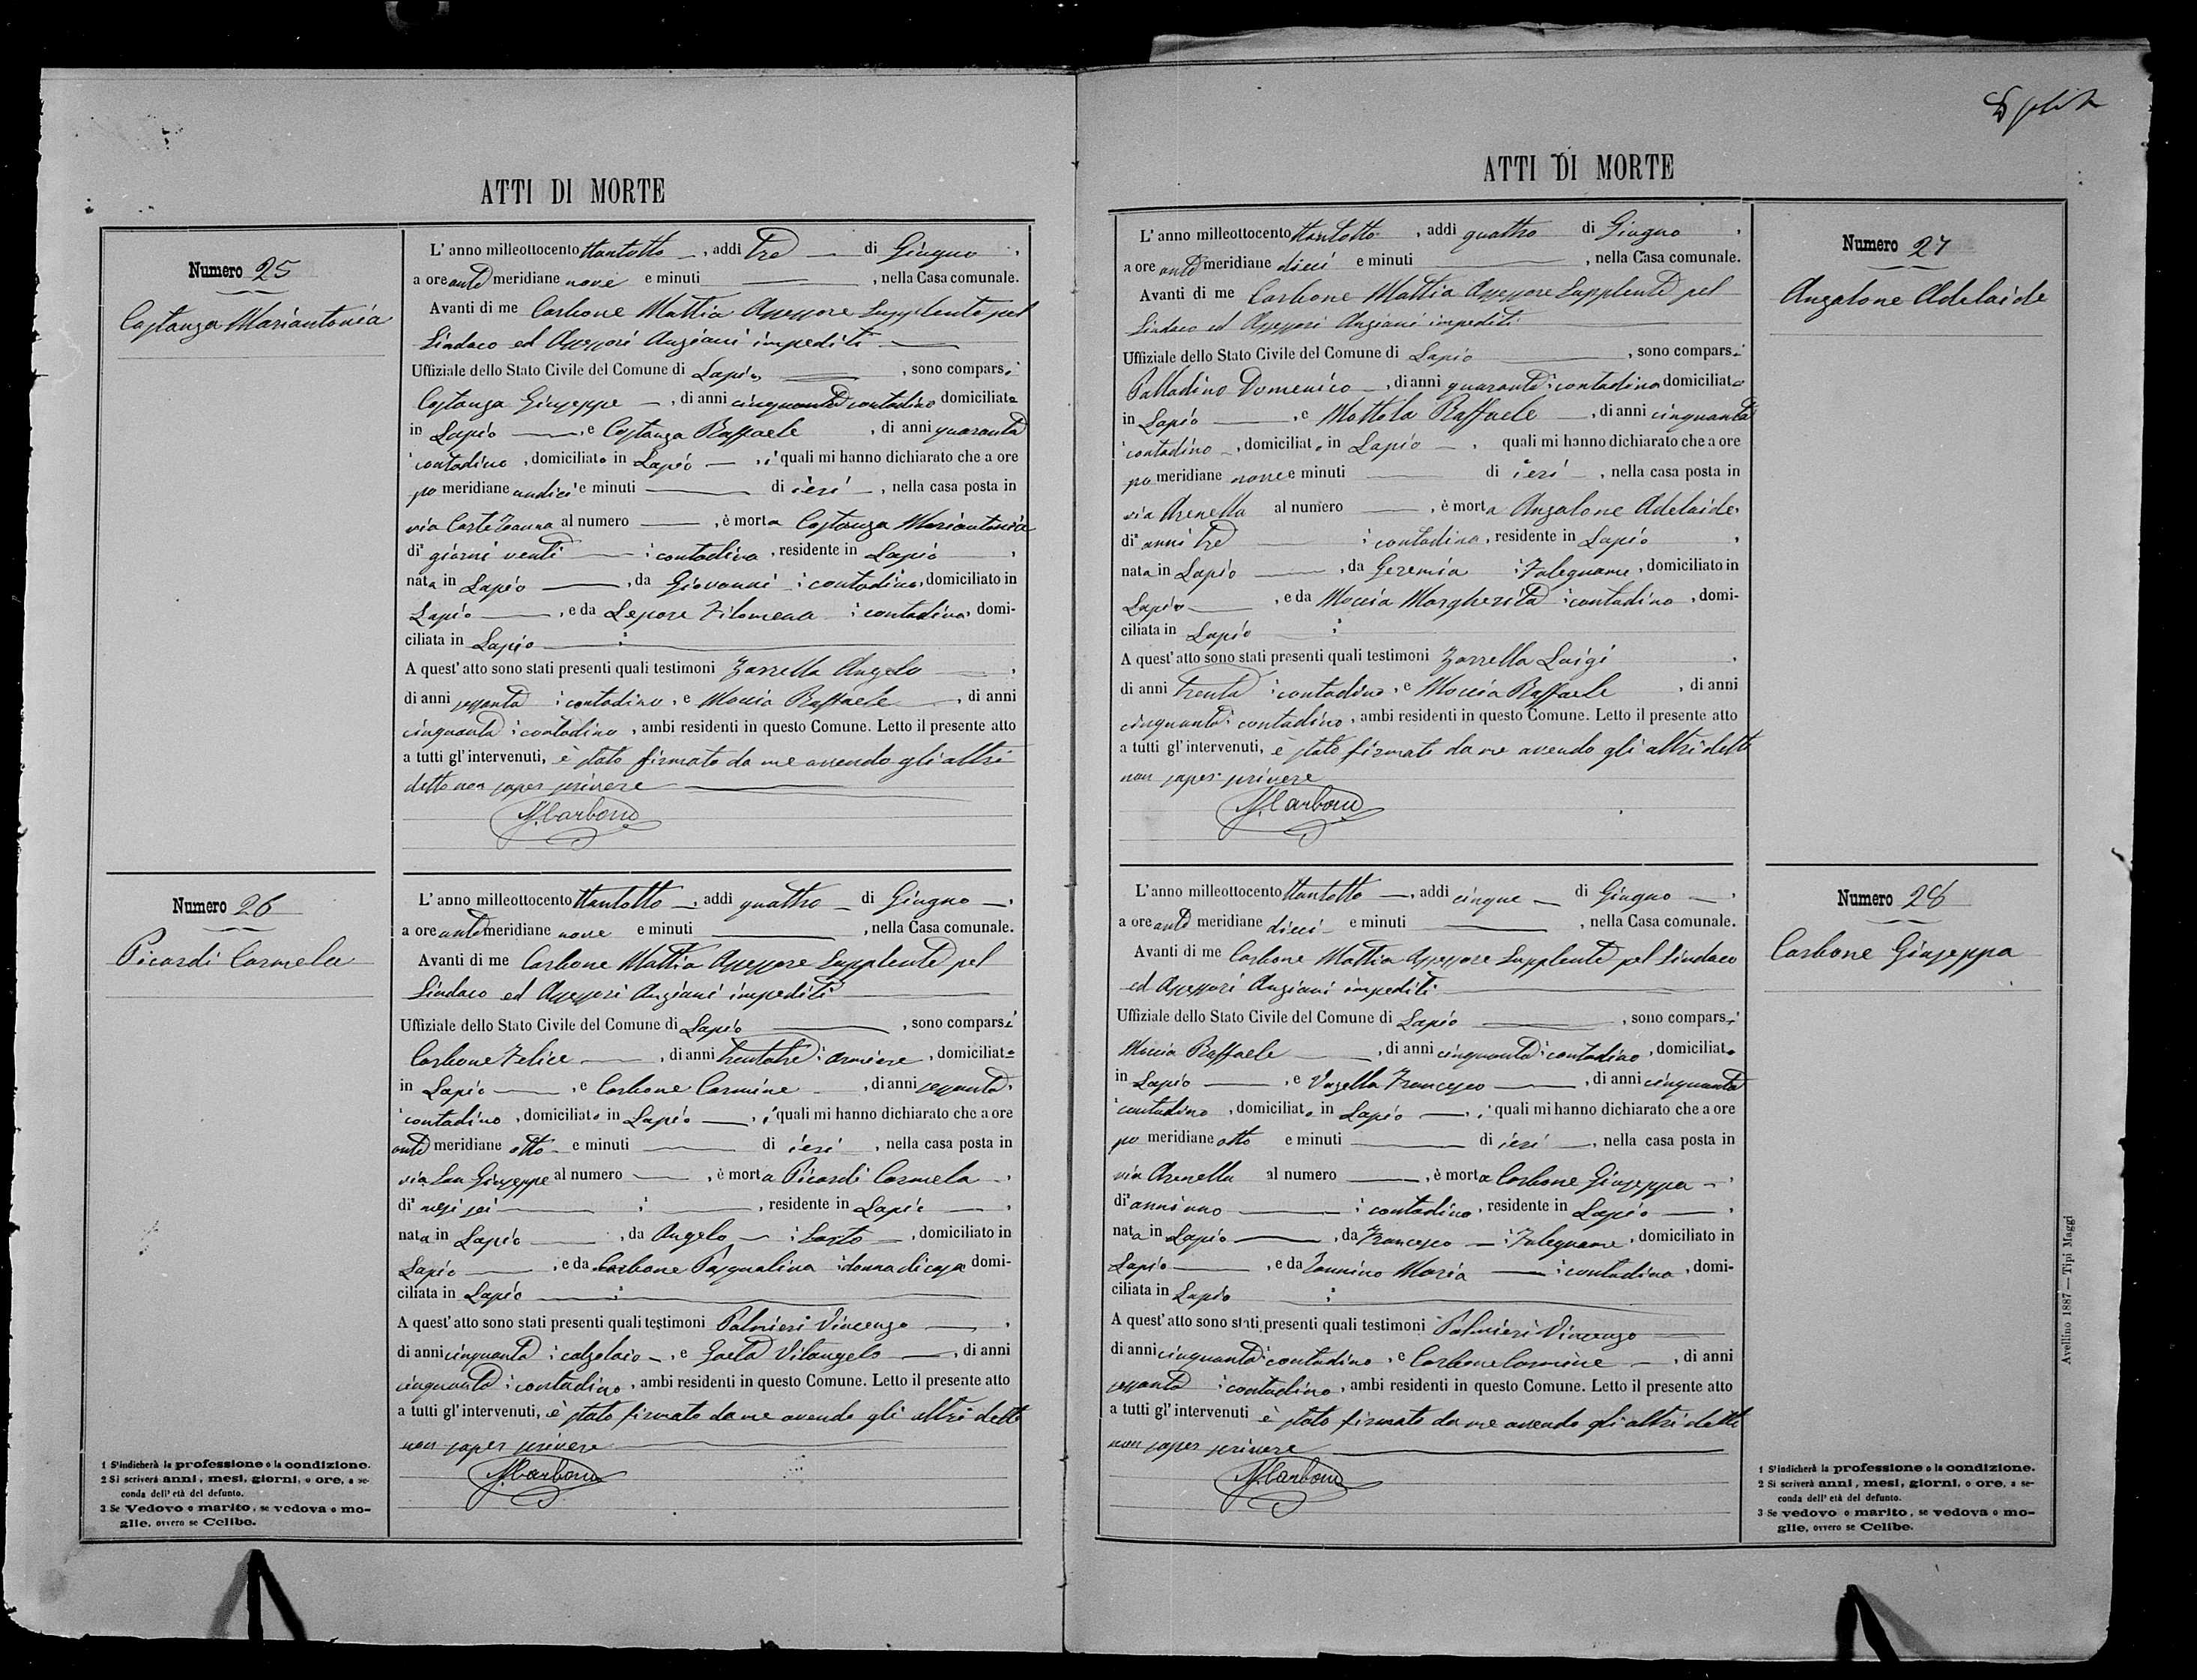 ATTI DI MORTE
Numero 25
Costanza Mariantonia
L' anno milleottocento ttantotto, addi tre di Giugno,
a ore ante meridiane nove e minuti , nella Casa comunale.
Avanti di me Carbone Mattia Assessore Supplente pel
Sindaco ed Assessori Anziani impediti
Uffiziale dello Stato Civile del Comune di Lapio, sono comparsi
Costanza Giuseppe, di anni cinquanta contadino domiciliato
in Lapio, e Costanza Raffaele, di anni quaranta
contadino, domiciliato in Lapio, i quali mi hanno dichiarato che a ore
po meridiane undici e minuti di ieri, nella casa posta in
via al numero , è morta Costanza Mariantonia
di giorni venti contadina, residente in Lapio,
nata in Lapio, da Giovanni contadino, domiciliato in
Lapio, e da Lepore Filomena contadina, domi-
ciliata in Lapio
A quest' atto sono stati presenti quali testimoni Zarrella Angelo,
di anni sessanta contadino, e Moccia Raffaele, di anni
cinquanta contadino, ambi residenti in questo Comune. Letto il presente atto
a tutti gl' intervenuti, è stato firmato da me avendo gli altri
detto non saper scrivere
M. Carbone
Numero 26
Picardi Carmela
L' anno milleottocento ttantotto, addi quattro di Giugno,
a ore ante meridiane nove e minuti , nella Casa comunale.
Avanti di me Carbone Mattia Assessore Supplente pel
Sindaco ed Assessori Anziani impediti
Uffiziale dello Stato Civile del Comune di Lapio, sono comparsi
Carbone Felice, di anni trentatre armiere, domiciliato
in Lapio, e Carbone Carmine, di anni sessanta,
contadino, domiciliato in Lapio, i quali mi hanno dichiarato che a ore
ante meridiane otto e minuti di ieri, nella casa posta in
via San Giuseppe al numero , è morta Picardi Carmela,
di mesi sei , residente in Lapio,
nata in Lapio, da Angelo Sarto, domiciliato in
Lapio, e da Carbone Pasqualina donna di casa domi-
ciliata in Lapio
A quest' atto sono stati presenti quali testimoni Palmieri Vincenzo,
di anni cinquanta calzolaio, e Gaeta Vitangelo, di anni
cinquanta contadino, ambi residenti in questo Comune. Letto il presente atto
a tutti gl' intervenuti, è stato firmato da me avendo gli altri detto
non saper scrivere
M. Carbone
1 S'indicherà la professione o la condizione.
2 Si scriverà anni, mesi, giorni, o ore, a se-
conda dell' età del defunto.
3 Se Vedovo o marito, se vedova o mo-
glie, ovvero se Celibe.
ATTI DI MORTE
L' anno milleottocento ttantotto, addi quattro di Giugno,
a ore ante meridiane dieci e minuti , nella Casa comunale.
Avanti di me Carbone Mattia Assessore Supplente pel
Sindaco ed Assessori Anziani impediti
Uffiziale dello Stato Civile del Comune di Lapio, sono comparsi
Palladino Domenico, di anni quaranta contadino domiciliato
in Lapio, e Mottola Raffaele, di anni cinquanta
contadino, domiciliato in Lapio, quali mi hanno dichiarato che a ore
po meridiane nove e minuti di ieri, nella casa posta in
via Arenella al numero , è morta Angalone Adelaide,
di anni tre contadina, residente in Lapio,
nata in Lapio, da Geremia Falegname, domiciliato in
Lapio, e da Moccia Margherita contadina, domi-
ciliata in Lapio
A quest' atto sono stati presenti quali testimoni Zarrella Luigi,
di anni trenta contadino, e Moccia Raffaele, di anni
cinquanta contadino, ambi residenti in questo Comune. Letto il presente atto
a tutti gl' intervenuti, è stato firmato da me avendo gli altri detto
non saper scrivere
M. Carbone
Numero 27
Angalone Adelaide
L' anno milleottocento ttantotto, addi cinque di Giugno,
a ore ante meridiane dieci e minuti , nella Casa comunale.
Avanti di me Carbone Mattia Assessore Supplente pel Sindaco
ed Assessori Anziani impediti
Uffiziale dello Stato Civile del Comune di Lapio, sono comparsi
Moccia Raffaele, di anni cinquanta contadino, domiciliato
in Lapio, e Vasella Francesco, di anni cinquanta
contadino, domiciliato in Lapio, i quali mi hanno dichiarato che a ore
po meridiane otto e minuti di ieri, nella casa posta in
via Arenella al numero , è morta Carbone Giuseppa,
di anni uno contadina, residente in Lapio,
nata in Lapio, da Francesco Falegname, domiciliato in
Lapio, e da Iannino Maria contadina, domi-
ciliata in Lapio
A quest' atto sono stati presenti quali testimoni Palmieri Vincenzo
di anni cinquanta contadino, e Carbone Carmine, di anni
sessanta contadino, ambi residenti in questo Comune. Letto il presente atto
a tutti gl' intervenuti è stato firmato da me avendo gli altri detto
non saper scrivere
M. Carbone
Numero 28
Carbone Giuseppa
1 S'indicherà la professione o la condizione.
2 Si scriverà anni, mesi, giorni, o ore, a se-
conda dell' età del defunto.
3 Se vedovo o marito, se vedova o mo-
glie, ovvero se Celibe.
Avellino 1887 — Tipi Maggi